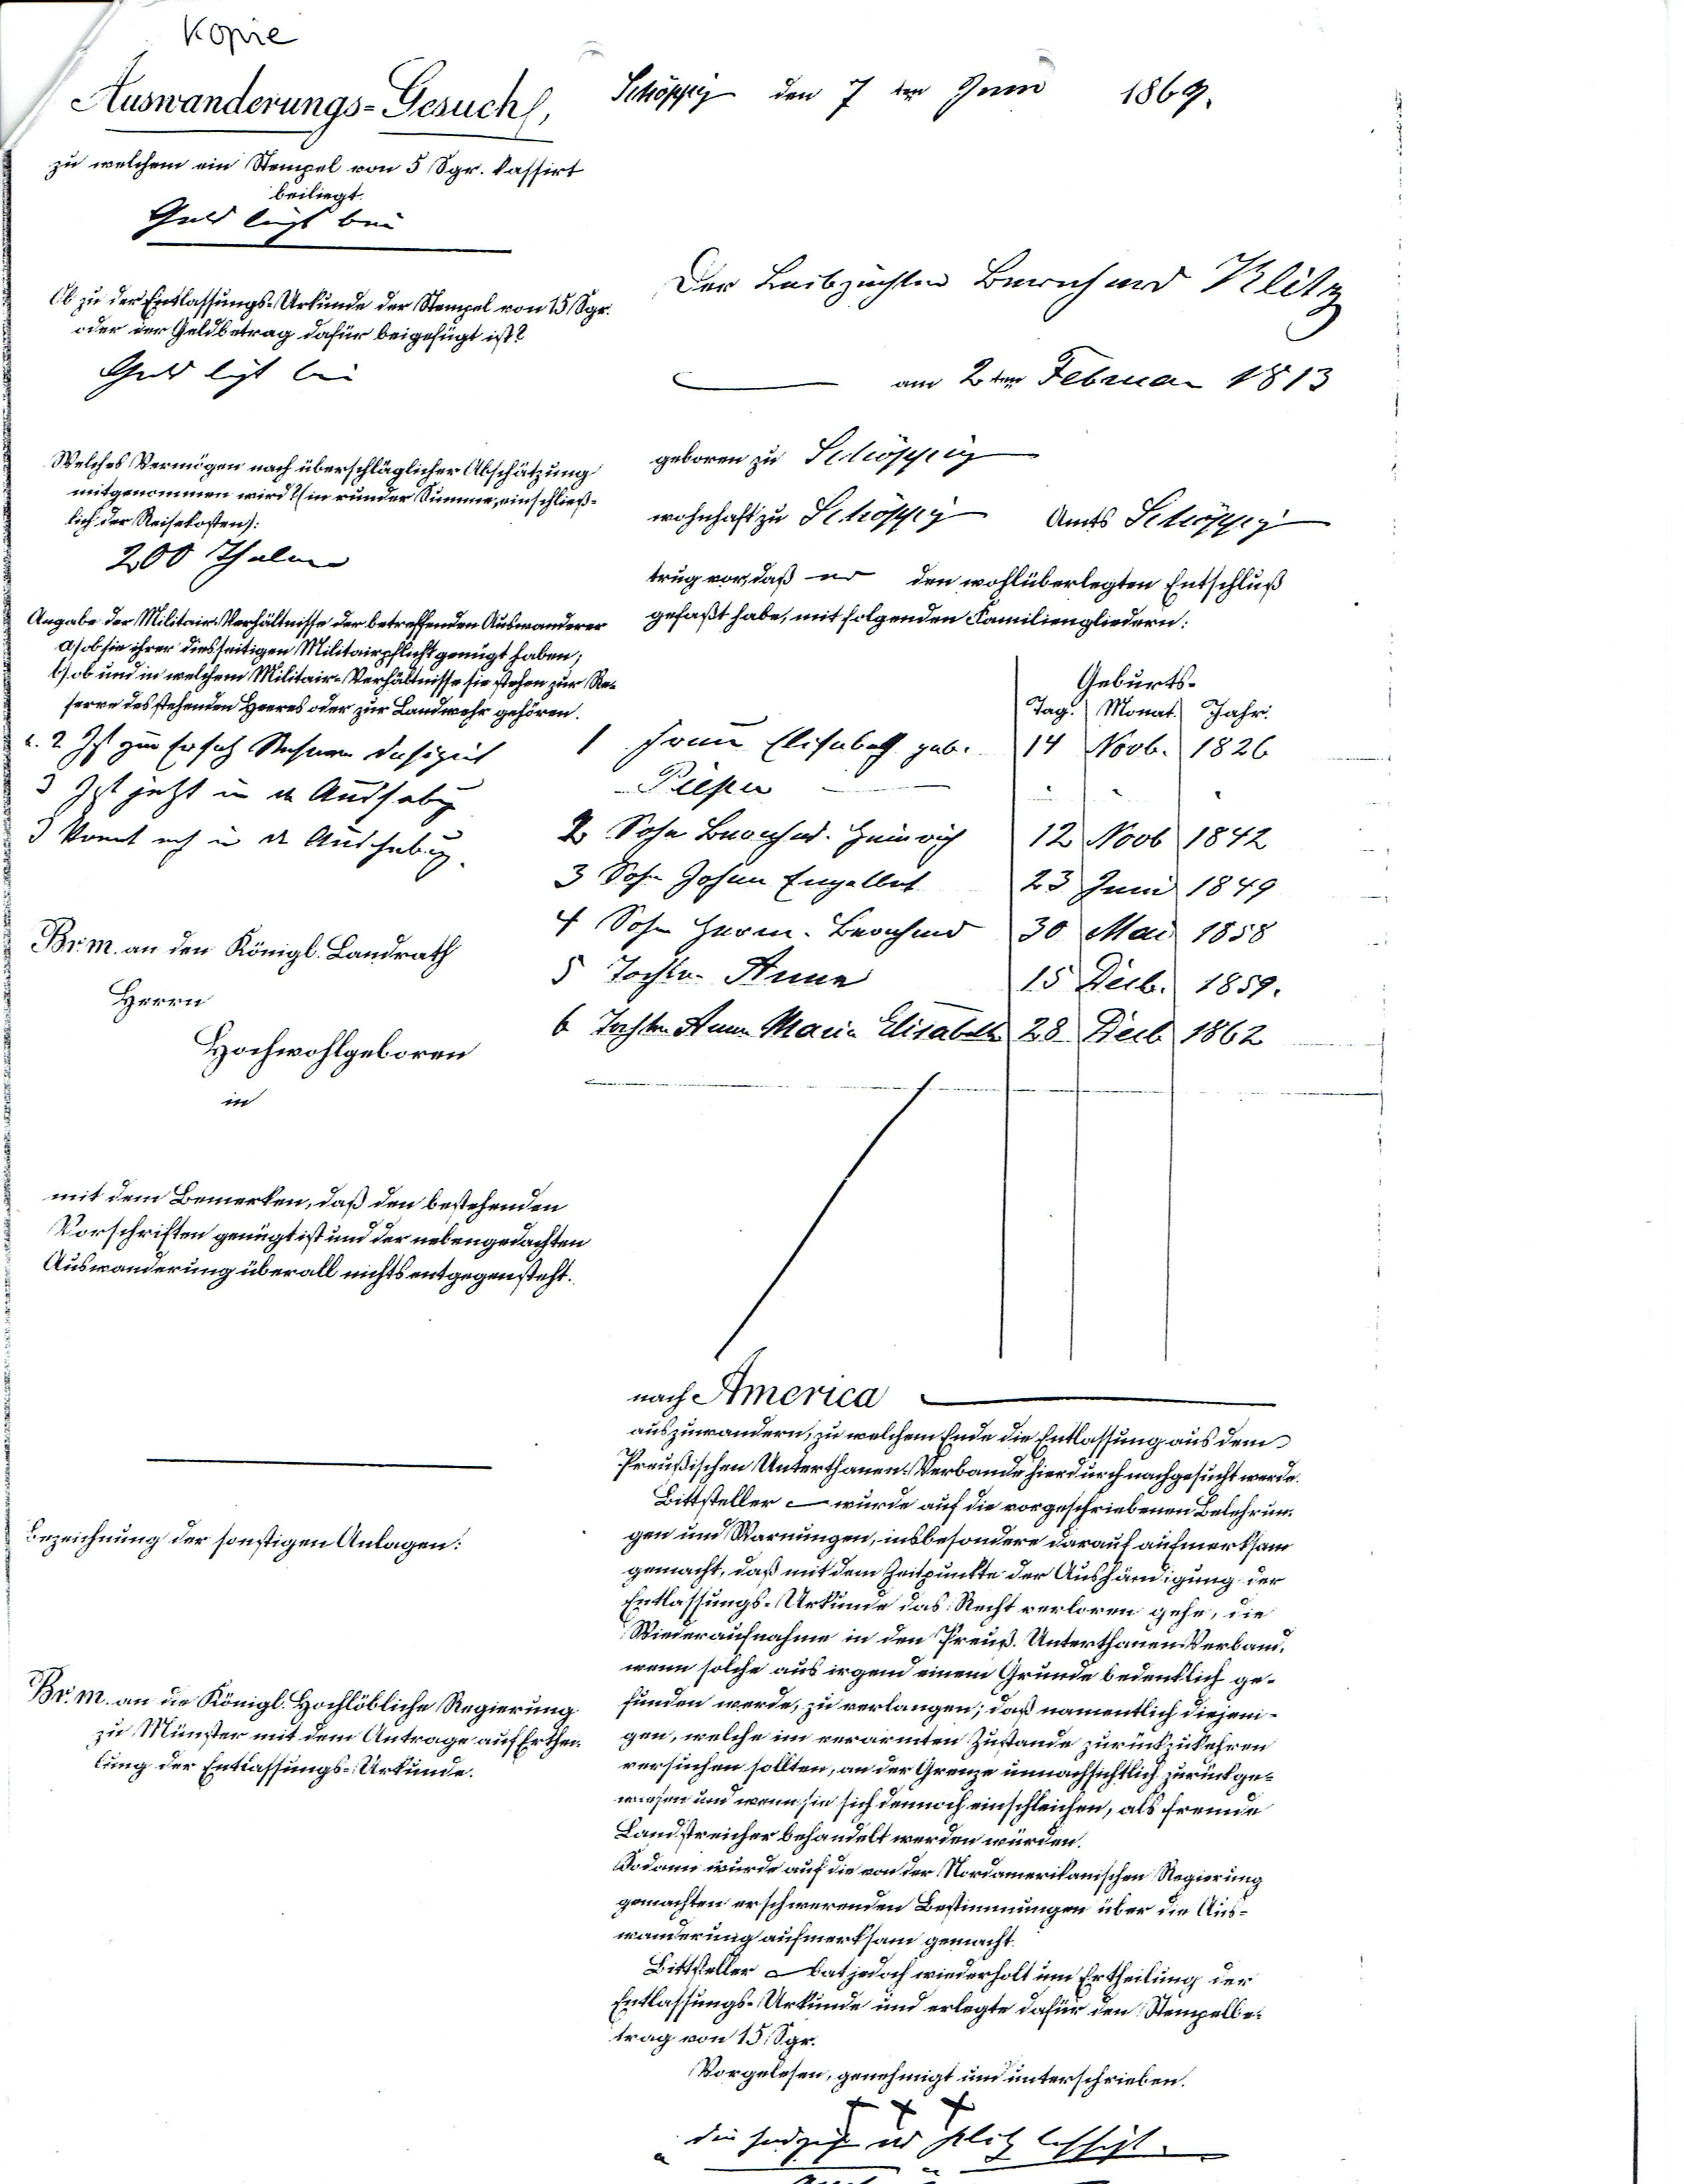 Kopie
Auswanderungs-Gesuch,
zu welchem ein Stempel von 5 Sgr. kassirt
beiliegt.
Geld liegt bei
Ob zu der Entlassungs-Urkunde der Stempel von 15 Sgr.
oder der Geldbetrag dafür beigefügt ist?
Geld liegt bei
Welches Vermögen nach überschläglicher Abschätzung
mitgenommen wird? (in runder Summe, einschließ-
lich der Reisekosten):
200 Thaler
Angabe der Militair-Verhältnisse der betreffenden Auswanderer
a) ob sie ihrer diesseitigen Militairpflicht genügt haben;
b) ob und in welchem Militair-Verhältnisse sie stehen zur Re-
serve des stehenden Heeres oder zur Landwehr gehören.
2 Ist zur Ersatz Reserve
3 Ist jetzt in der Aushebung
kommt noch in der Aushebung.
Br. m. an den Königl. Landrath
Herrn
Hochwohlgeboren
in
mit dem Bemerken, daß den bestehenden
Vorschriften genügt ist und der nebengedachten
Auswanderung überall nichts entgegensteht.
Bezeichnung der sonstigen Anlagen:
Br. m. an die Königl. Hochlöbliche Regierung
zu Münster mit dem Antrage auf Erthei-
lung der Entlassungs-Urkunde.
Schöppig den 7ten Juni 1869.
Der Leibzüchter Bernhard Klitz
am 2ten Februar 1813
geboren zu Schöppig
wohnhaft zu Schöppig Amts Schöppig
trug vor, daß er den wohlüberlegten Entschluß
gefaßt habe, mit folgenden Familiengliedern:
Geburts-
Tag. Monat. Jahr.
1 Frau Elisabeth geb. 14 Novb. 1826
Pieper
2 Sohn Bernhard Heinrich 12 Novb 1842
3 Sohn Johan Engelbert 23 Juni 1849
4 Sohn Herm. Bernhard 30 Mai 1858
5 Tochter Anna 15 Decb. 1859.
6 Tochter Anna Maria Elisabeth 28 Decb 1862
nach America
auszuwandern, zu welchem Ende die Entlassung aus dem
Preußischen Unterthanen-Verbande hierdurch nachgesucht werde.
Bittsteller wurde auf die vorgeschriebenen Belehrun-
gen und Warnungen, insbesondere darauf aufmerksam
gemacht, daß mit dem Zeitpunkte der Aushändigung der
Entlassungs-Urkunde das Recht verloren gehe, die
Wiederaufnahme in den Preuß. Unterthanen-Verband,
wenn solche aus irgend einem Grunde bedenklich ge-
funden werde, zu verlangen; daß namentlich diejeni-
gen, welche im verarmten Zustande zurückzukehren
versuchen sollten, an der Grenze unnachsichtlich zurückge-
wiesen und wenn sie sich dennoch einschleichen, als fremde
Landstreicher behandelt werden würden.
Sodann wurde auf die von der Nordamerikanischen Regierung
gemachten erschwerenden Bestimmungen über die Aus-
wanderung aufmerksam gemacht.
Bittsteller bat jedoch wiederholt um Ertheilung der
Entlassungs-Urkunde und erlegte dafür den Stempelbe-
trag von 15 Sgr.
Vorgelesen, genehmigt und unterschrieben.
+ + +
die Handzeichen des Klitz